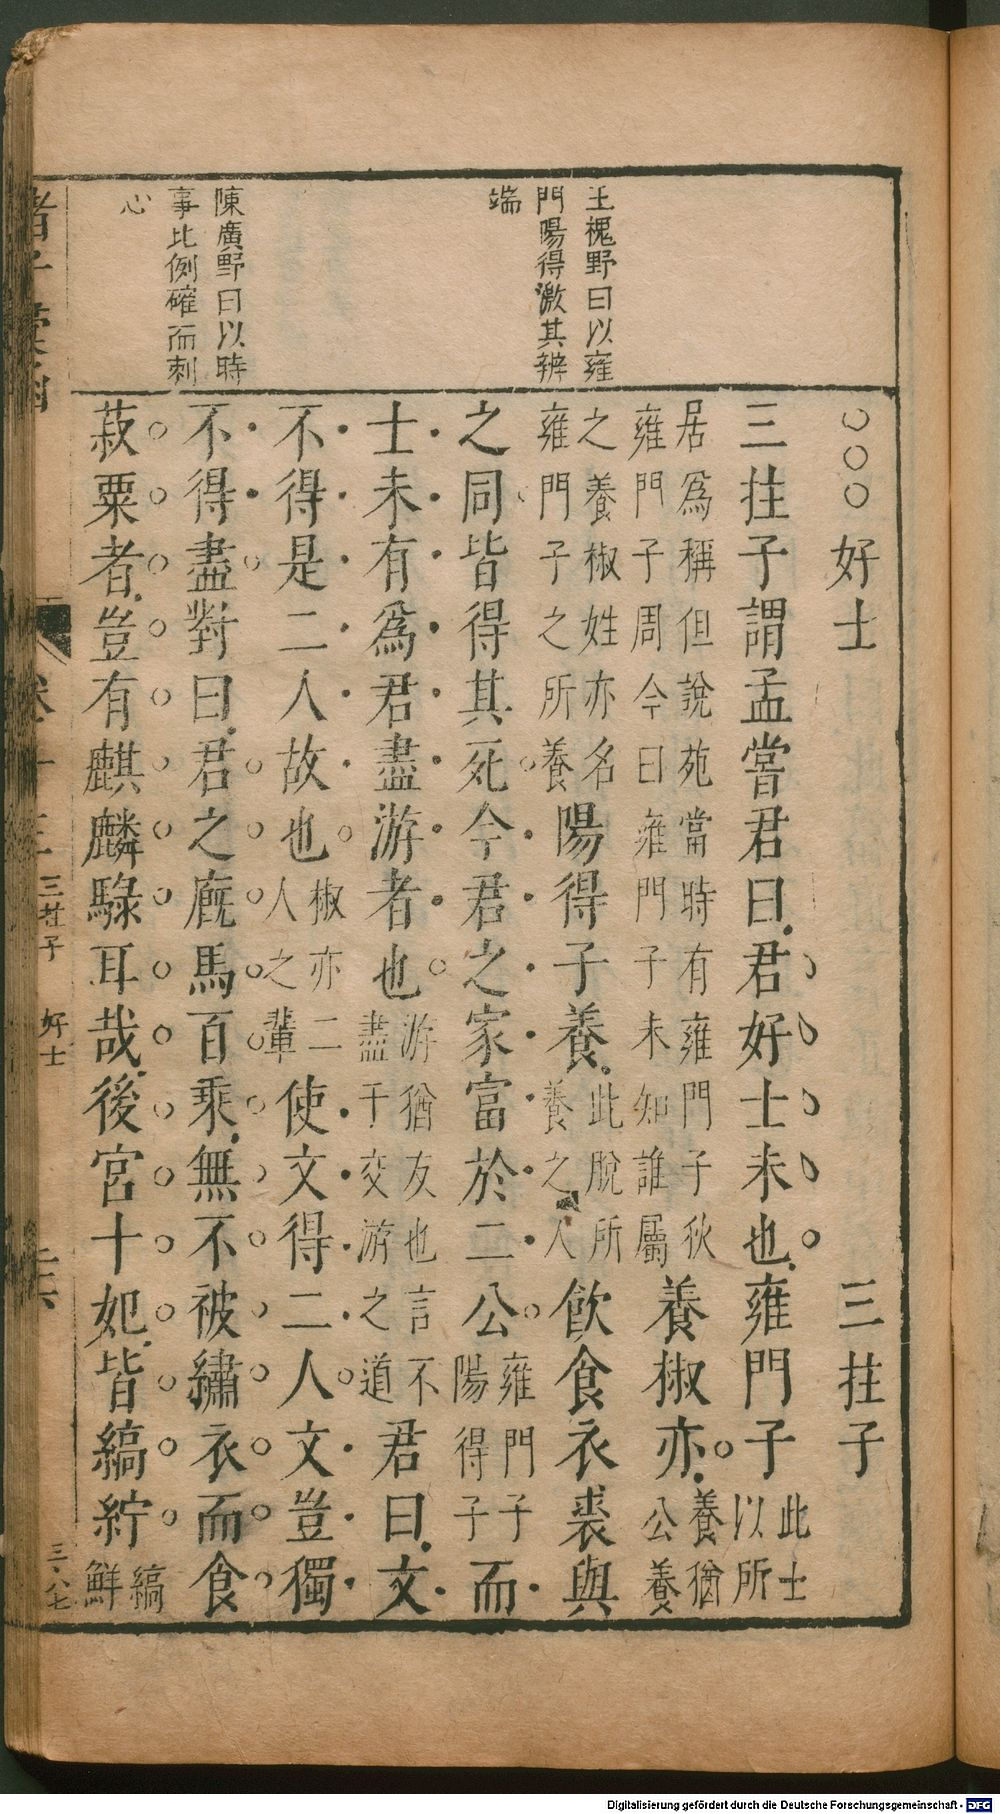 王槐野曰以雍
門陽得激其辨
端
陳廣野曰以時
事比例確而刺
心
○○○好士 三拄子
三拄子謂孟嘗君曰君好士未也雍門子此士以所
居爲稱但說苑當時有雍門子狄
雍門子周今曰雍門子未知誰屬養椒亦養猶公養
之養椒姓亦名
雍門子之所養陽得子養此脫所養之人飲食衣裘與
之同皆得其死今君之家富於二公雍門子陽得子而
士未有爲君盡游者也游猶友也言不盡于交游之道君曰文
不得是二人故也椒亦二人之輩使文得二人文豈獨
不得盡對曰君之廐馬百乘無不被繡衣而食
菽粟者豈有麒麟騄耳哉後宮十妃皆縞紵縞鮮
三拄子 好士
三八七
Digitalisierung gefördert durch die Deutsche Forschungsgemeinschaft - DFG